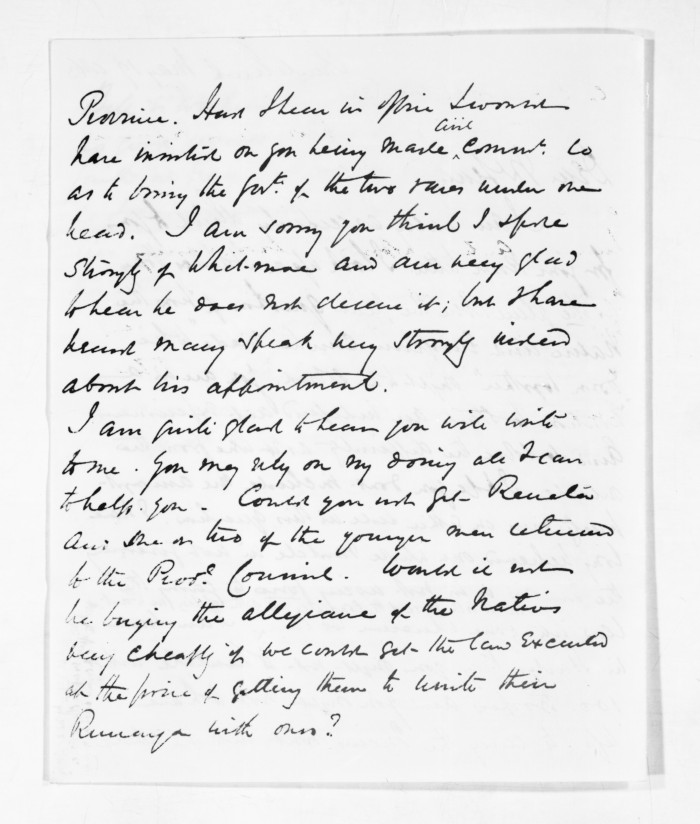 Province. Had I been in office I would
have insisted on you being made Civil Commr. so
as to bring the Govt. of the two races under one
head. I am sorry you think I spoke
strongly of Whitmore and am very glad
to hear he does not deserve it; but I have
heard many speak very strongly indeed
about his appointment.
I am quite glad to hear you will write
to me. You may rely on my doing all I can
to help you. Could you not get Renata
and one or two of the younger men returned
to the Provl. Council. Would it not
be buying the allegiance of the Natives
very cheaply if we could get the law executed
at the price of getting them to unite their
Runanga with ours?